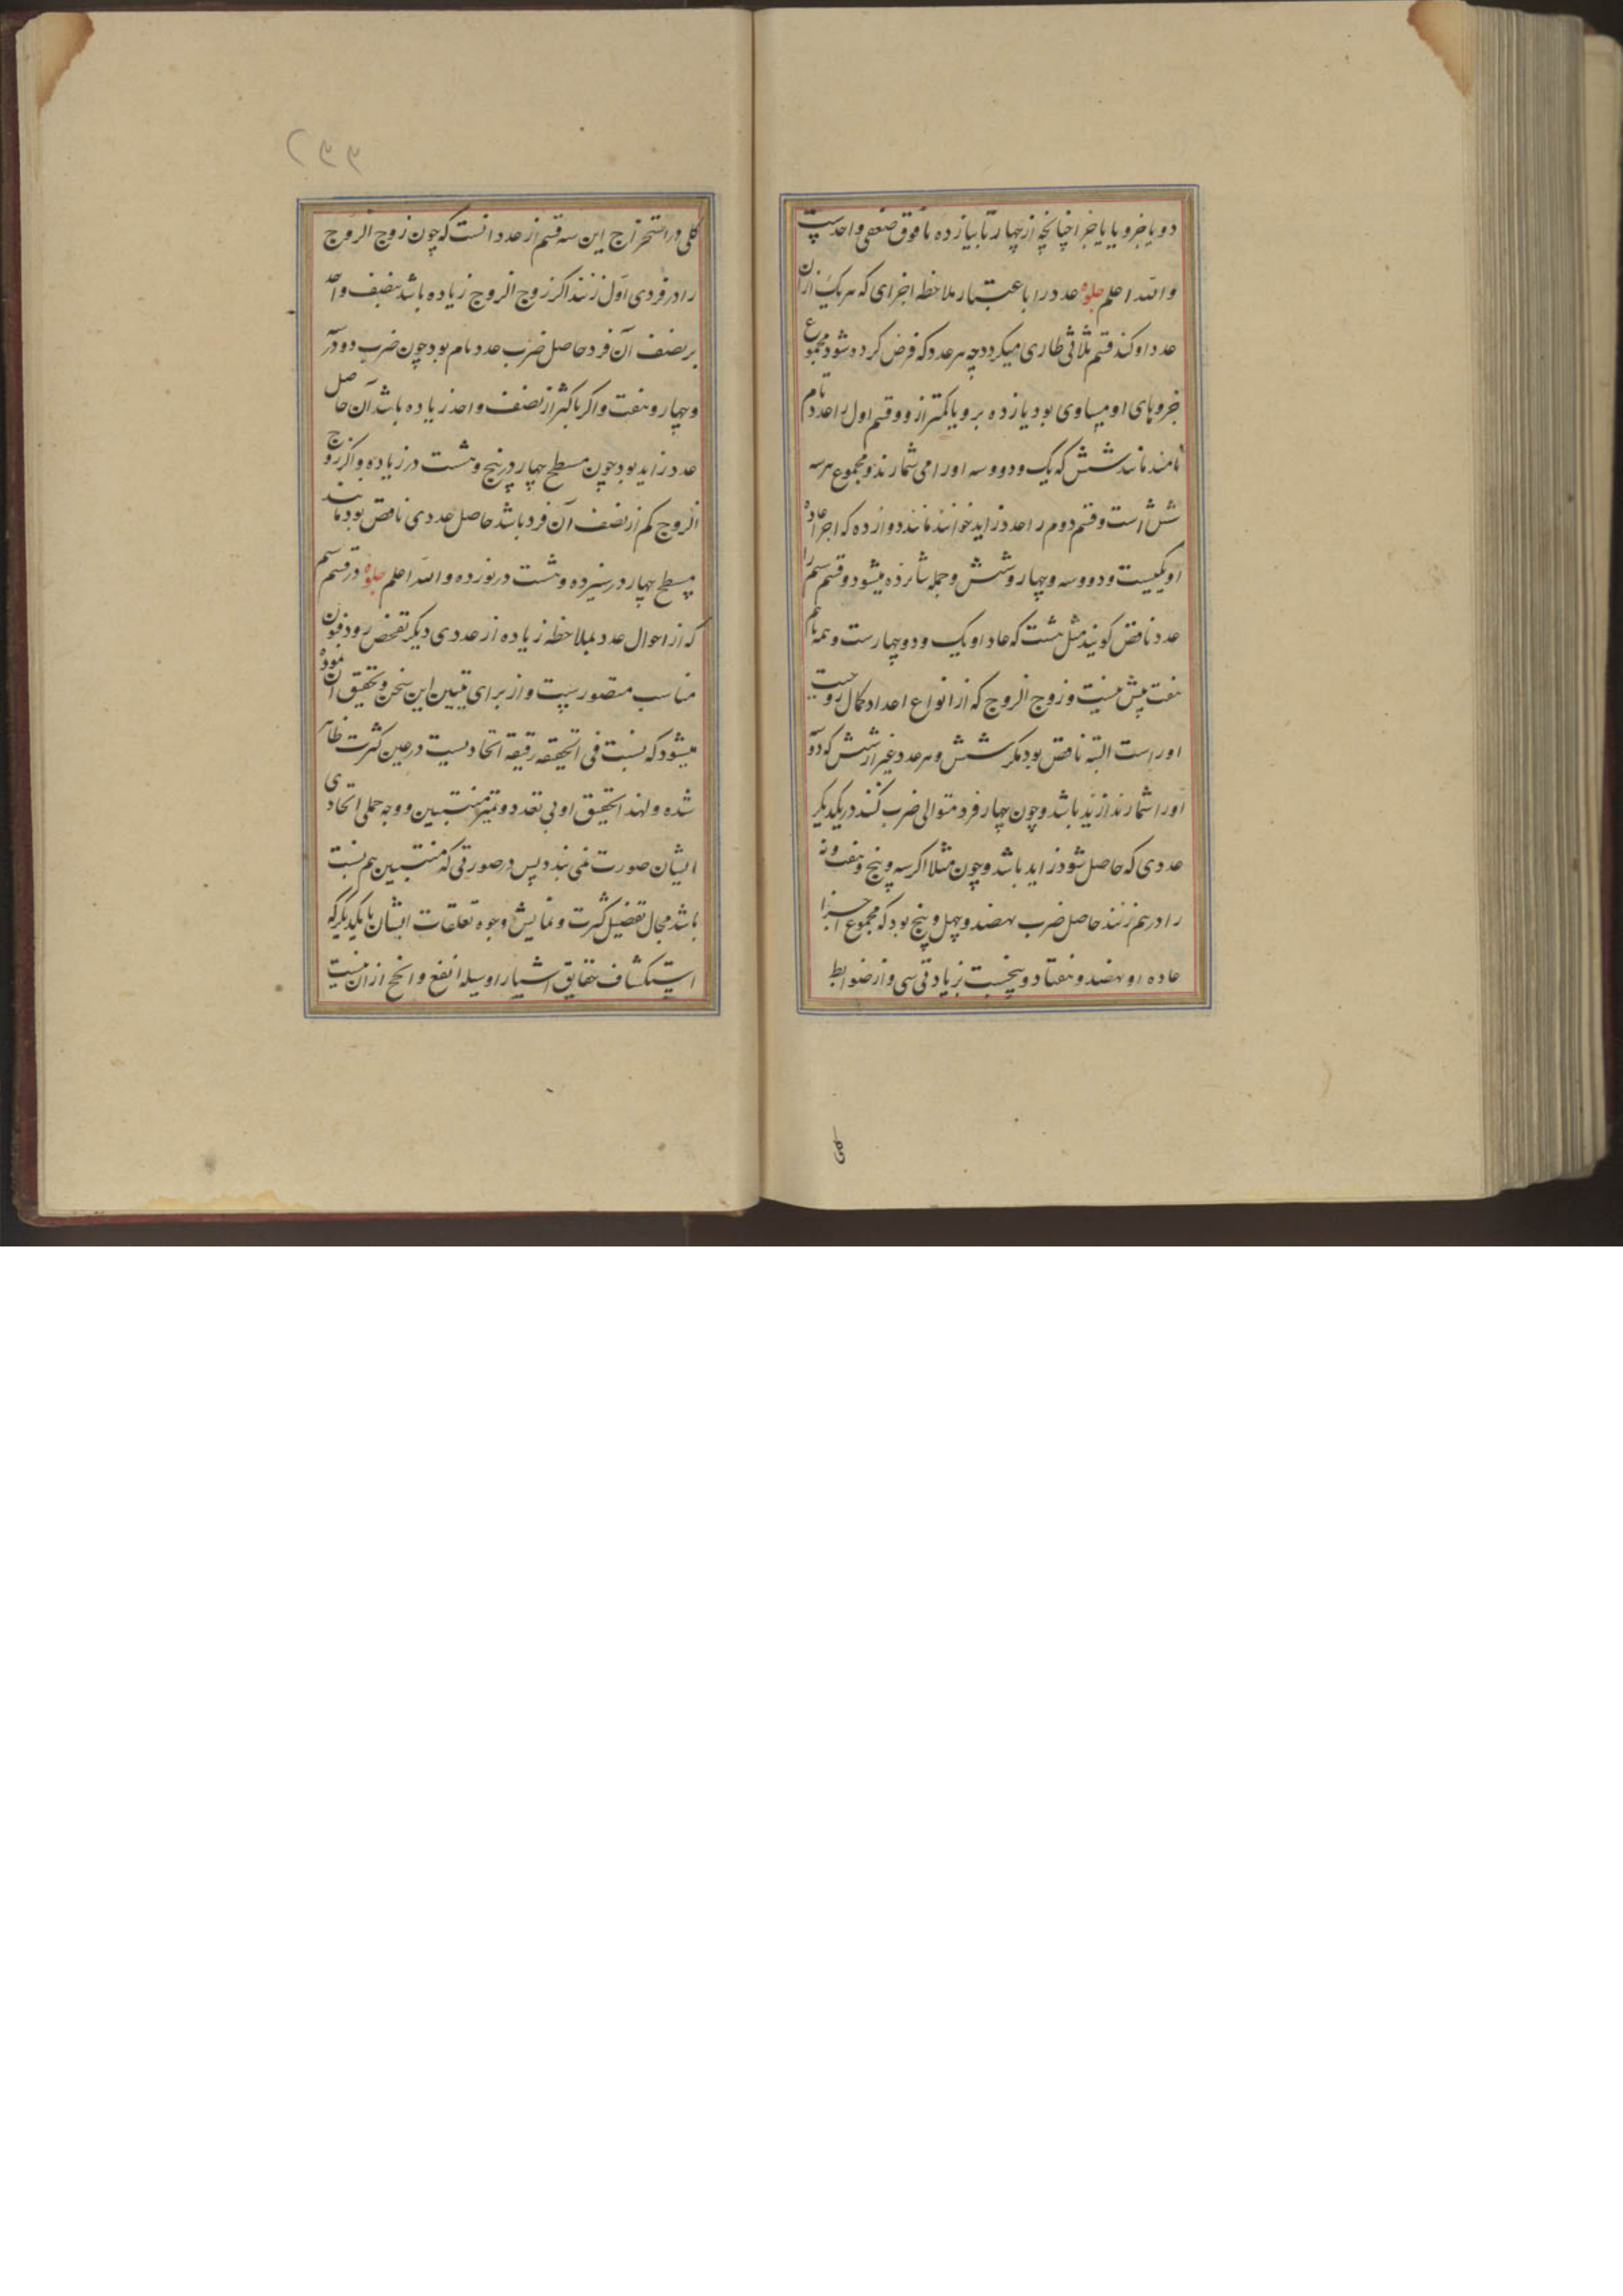 دو یا جزو یا یا جزا چنانچه از چهار تا بیازده ما فوق ضعفی واحدست
والله اعلم جلوه عدد را باعتبار ملاحظه اجزای که هریک ازان
عدد او کند قسم ثلاثی طاری میکردد چه هر عدد که فرض کرده شود مجموع
جزوهای او مساوی بود یا زده برو یا کمتر ازو و قسم اول را عدد تام
نامند مانند شش که یک و دو و سه او را می شمارند و مجموع هر سه
شش است و قسم دوم را عدد زاید خوانند مانند دوازده که اجزا عاده
او یکیست و دو و سه و چهار و شش و جمله شانزده میشود و قسم سیم را
عدد ناقص کویند مثل هشت که عاد او یک و دو و چهارست و همه باهم
هفت بیش نیست و زوج الزوج که از انواع اعداد کمال زوجیت
او راست البته ناقص بود مکر شش و هر عدد غیر از شش که دو
او را شمارند زاید باشد و چون چهار فرد متوالی ضرب کنند در یکدیکر
عددی که حاصل شود زاید باشد و چون مثلا اکر سه و پنج و هفت و نه
را در هم زنند حاصل ضرب نهصد و چهل و پنج بود که مجموع اجزا
عاده او نهصد و هفتاد و پنجست بزیادتی سی و از ضوابط
کلی
۲۳۳
کلی در استخراج این سه قسم از عدد انست که چون زوج الزوج
را در فردی اول زنند اکر زوج الزوج زیاده باشد بنصف واحد
بر نصف آن فرد حاصل ضرب عدد تام بود چون ضرب دو در
و چهار و هفت و اکر باکثر از نصف واحد زیاده باشد آن حاصل
عدد زاید بود چون مسطح چهار در پنج و هشت در زیاده و اکر زوج
الزوج کم از نصف آن فرد باشد حاصل عددی ناقص بود مانند
مسطح چهار در سیزده و هشت در نوزده والله اعلم جلوه در قسم سیم
که از احوال عدد بملاحظه زیاده از عددی دیکر تفحص رود فنون
مناسب متصورست و از برای تبیین این سخن و تحقیق ان نموده
میشود که نسبت فی الحقیقه رقیقه اتحادیست در عین کثرت ظاهر
شده و لهذا تحقیق او بی تعدد و تمیز منتسبین و وجه جملی اتحادی
ایشان صورت نمی بندد پس در صورتی که منتسبین هم نسبت
باشد مجال تفصیل کثرت و نمایش وجوه تعلقات ایشان با یکدیکر که
استکشاف حقایق اشیا را وسیله انفع و انجح ازان نیست